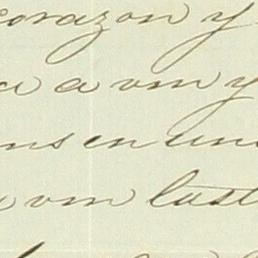 corazon y
a a vm y
ns en un
vm last